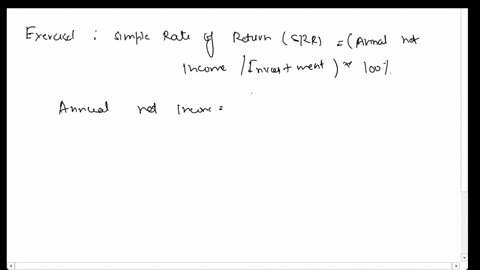 Exercise : Simple Rate of Return (SRR) = (Annual net
Income / Investment) * 100%
Annual net Income =